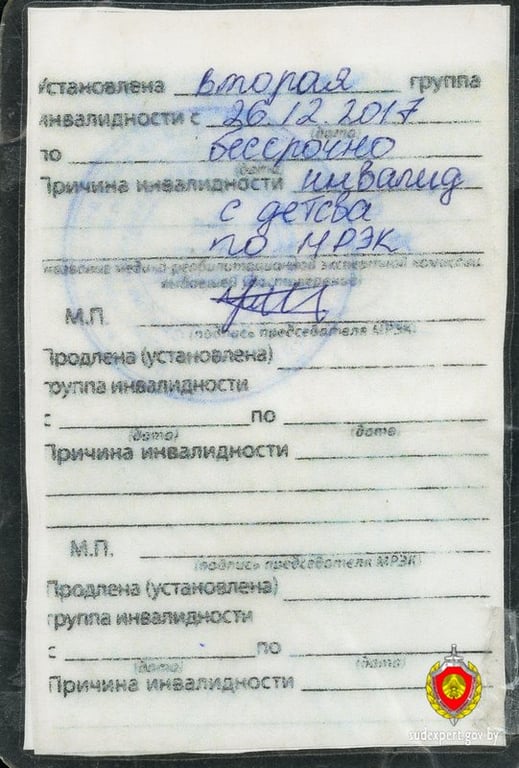 Установлена вторая группа
инвалидности с 26.12.2017
(дата)
по бессрочно
(дата)
Причина инвалидности инвалид
с детсва
по МРЭК
(название медико-реабилитационной экспертной комиссии,
выдавшей удостоверение)
М.П.
(подпись председателя МРЭК)
Продлена (установлена)
группа инвалидности
с по
(дата) (дата)
Причина инвалидности
М.П.
(подпись председателя МРЭК)
Продлена (установлена)
группа инвалидности
с по
(дата) (дата)
Причина инвалидности
sudexpert.gov.by